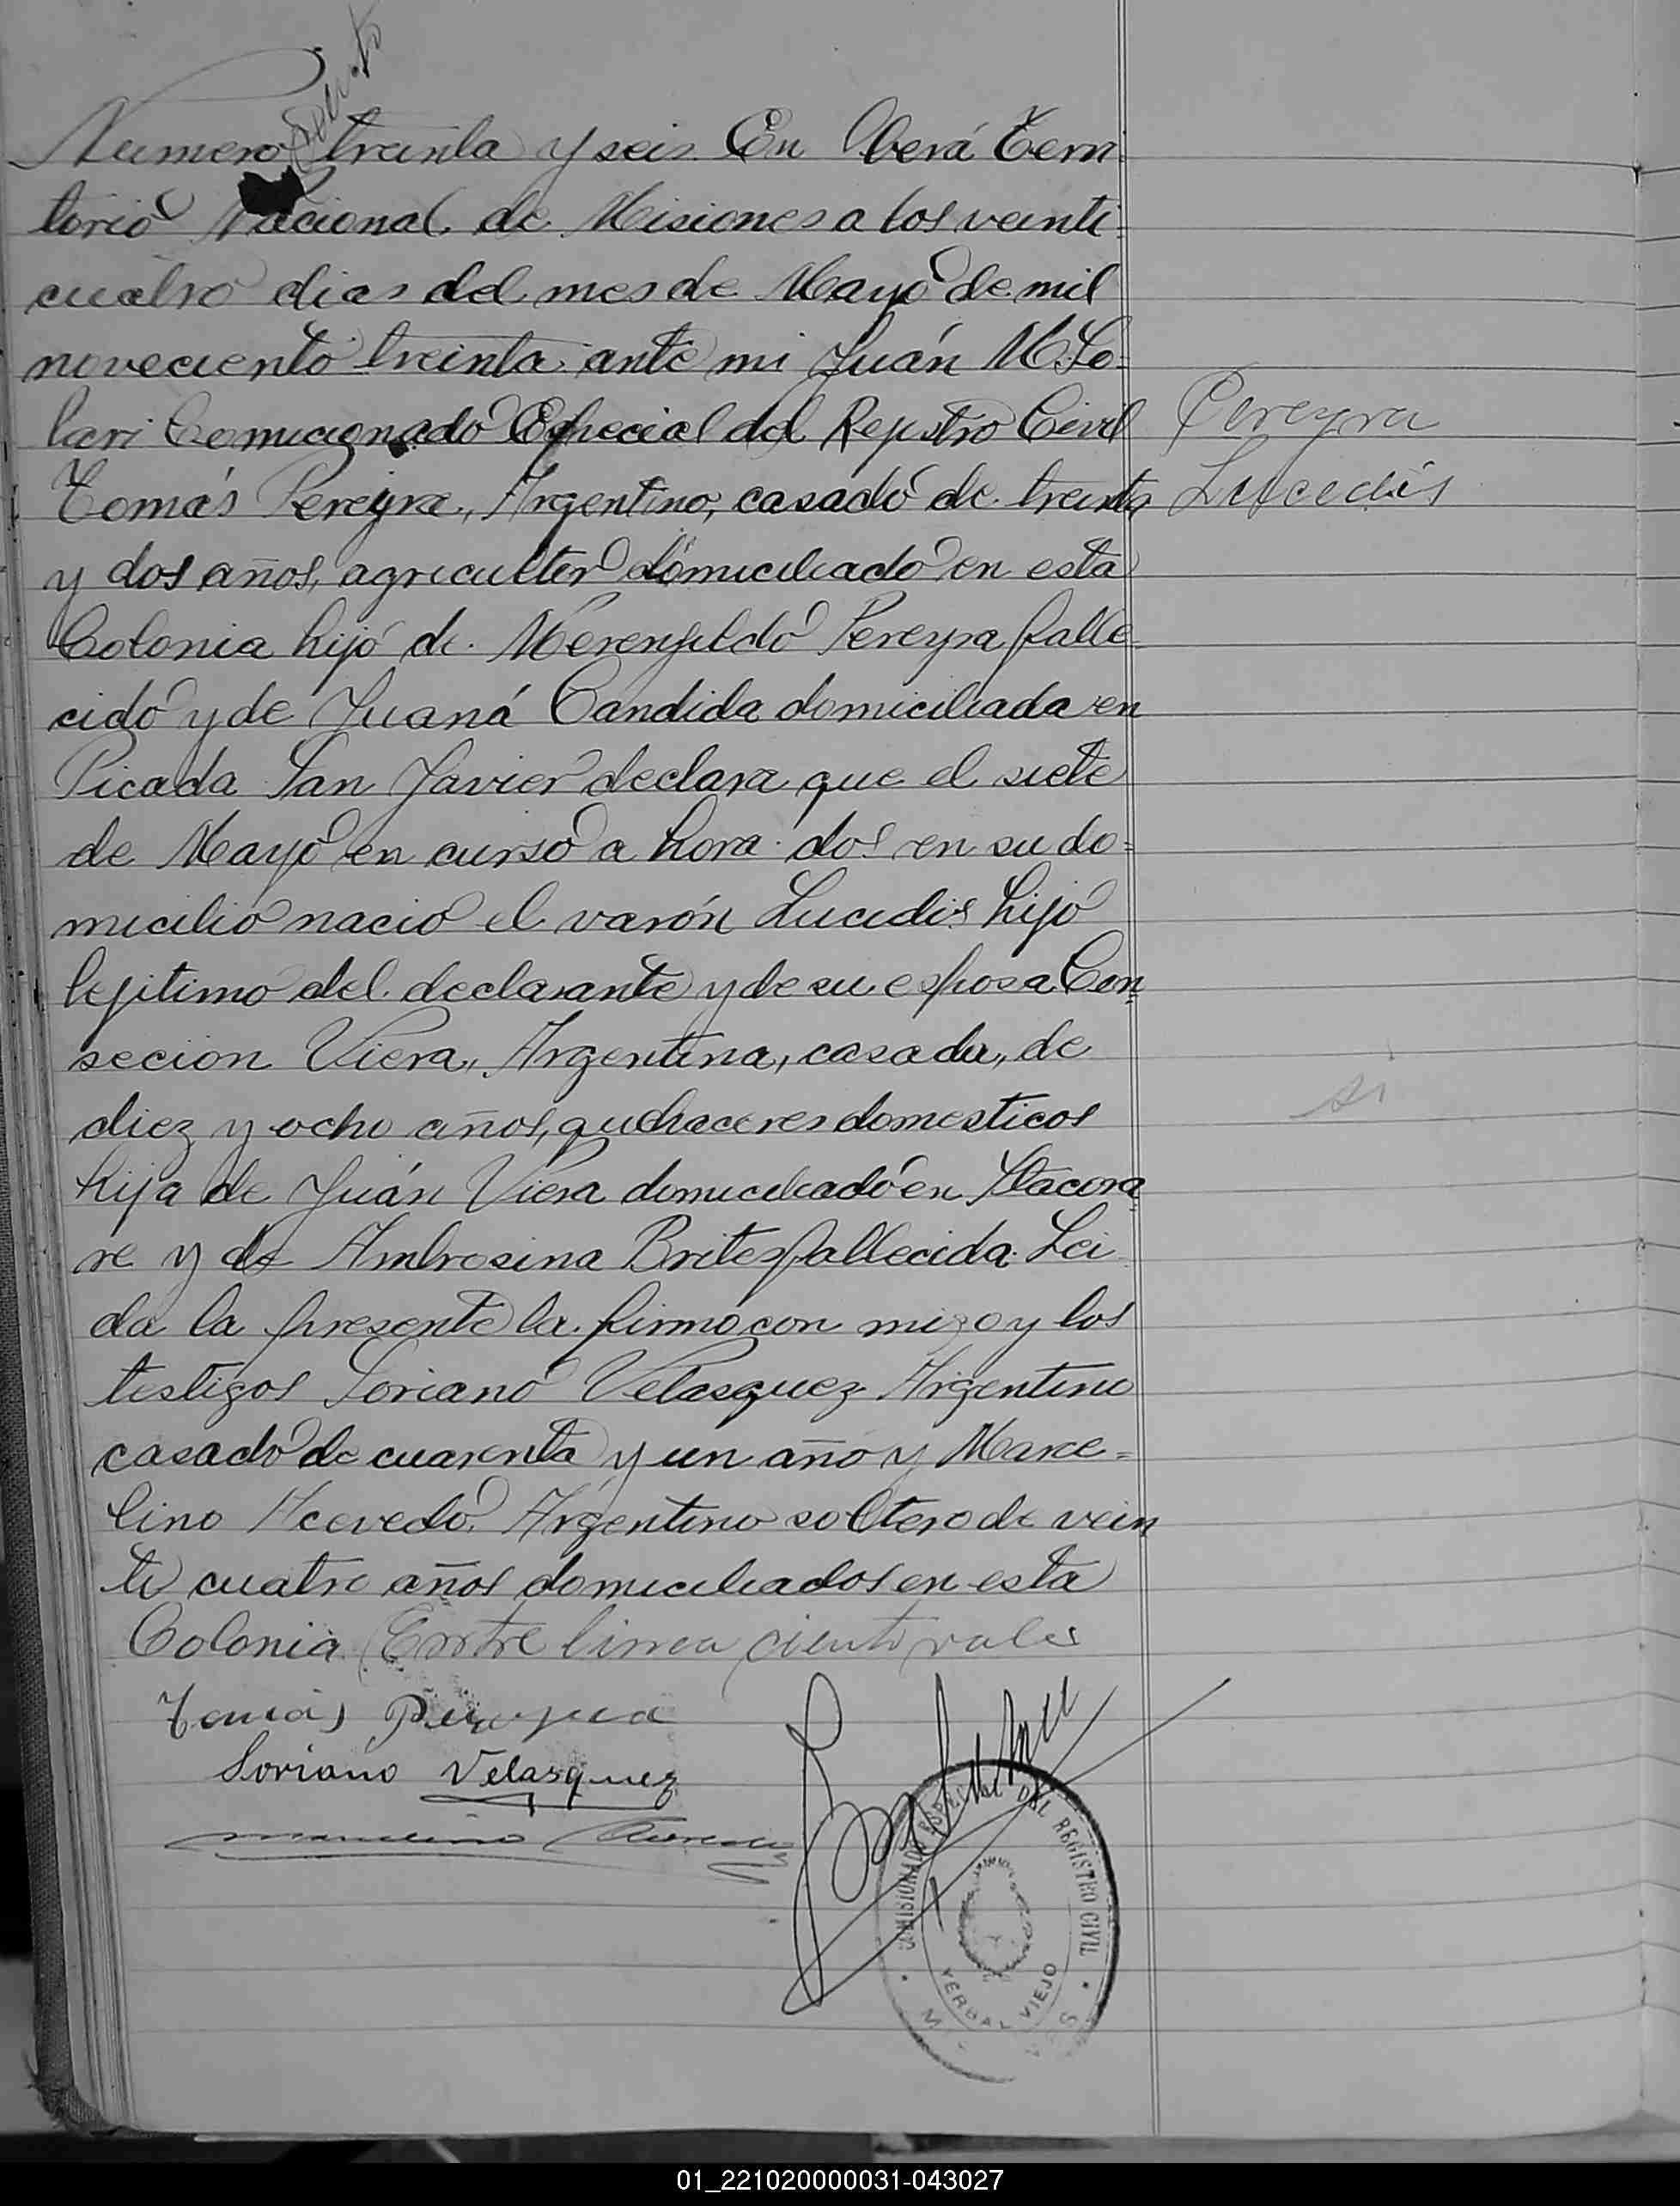 ciento
Numero treinta y seis En Oberá Terri
torio Nacional de Misiones a los veinti=
cuatro dias del mes de Mayo de mil
noveciento treinta ante mi Juán M. So=
lari Comicionado Especial del Rejistro Civil
Tomás Pereyra, Argentino, casado de treinta
y dos años, agricultor domiciliado en esta
Colonia hijo de Merenjildo Pereyra falle
cido y de Juaná Candida domiciliada en
Picada San Javier declara que el siete
de Mayo en curso a hora dos en su do=
micilio nacio el varón Lucidis hijo
lejitimo del declarante y de su esposa Con
secion Viera, Argentina, casada, de
diez y ocho años, quehaceres domesticos
hija de Juán Viera domiciliado en Itacora
re y de Ambrosina Brites fallecida. Lei
da la presente la firmo con migo y los
testigos Soriano Velasquez Argentino
casado de cuarenta y un año y Marce=
lino Acevedo Argentino soltero de vein
ti cuatro años domiciliados en esta
Colonia (Entre linea ciento vale)
Tomás Pereyra
Soriano Velasquez
Marcelino Acevedo
Pereyra
Lucidis
si
COMISIONADO ESPECIAL DEL REGISTRO CIVIL
YERBAL VIEJO
01_221020000031-043027